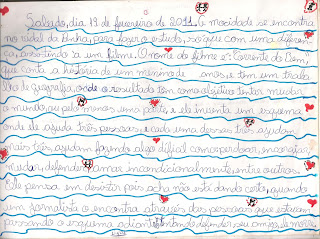 Sabado, dia 19 de fevereiro de 2011. A mocidade se encontra
na videl da Penha, para fazer o estudo, só que com uma diferen-
ça, assistindo a um filme. O nome do filme é: Corrente do Bem,
que conta a história de um menino de anos, e tem um traba
lho de geografia, onde o resultado tem como objetivo tentar mudar
o mundo, ou pelo menos uma parte, e ele inventa um esquema
onde ele ajuda três pessoas, e cada uma dessas três ajudam
mais três, ajudam fazendo algo difícil como perdoar, encorajar,
mudar, defender, amar incondicionalmente, entre outros.
Ele pensa em desistir pois acha não está dando certo, quando
um jornalista o encontra através das pessoas que estavam
passando o esquema adiante. tentando defender seu amigo, ele morre